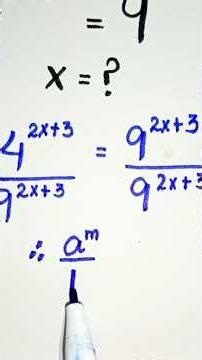 = 9
x = ?
4^{2x+3} / 9^{2x+3} = 9^{2x+3} / 9^{2x+3}
∴ a^m /